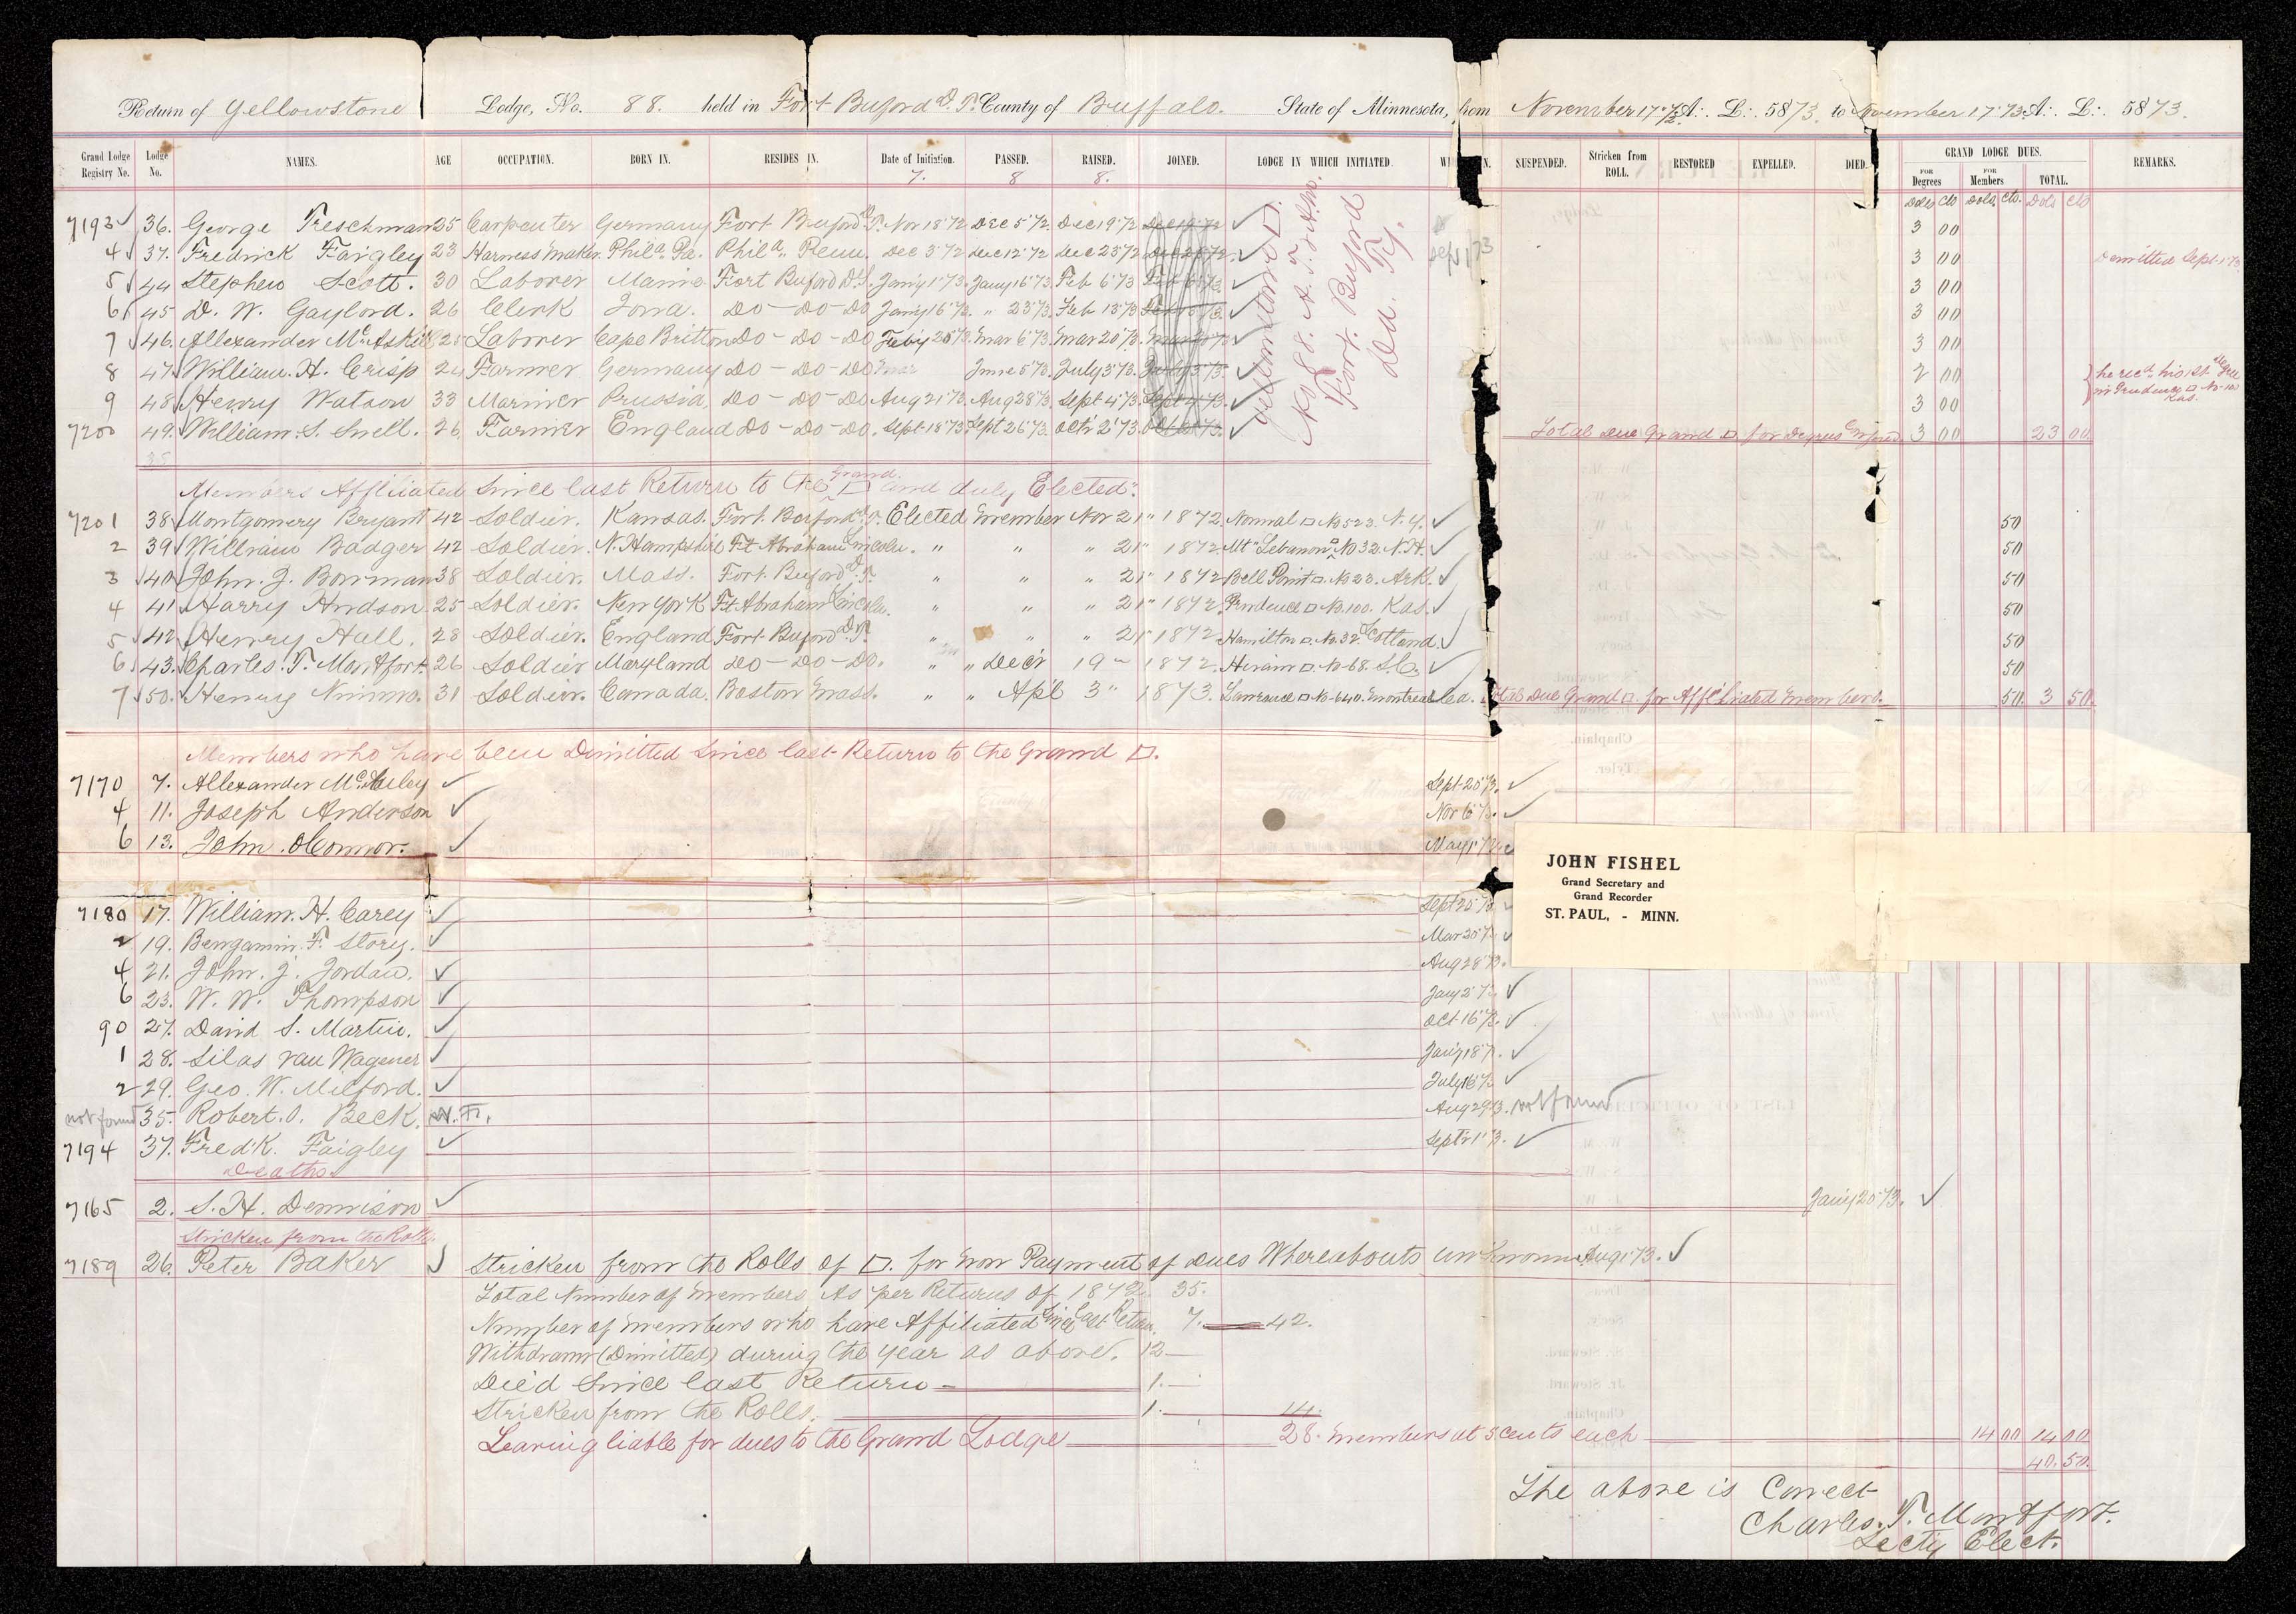 Return of Yellowstone Lodge, No. 88. held in Fort Buford D. T. County of Buffalo. State of Minnesota, from November 17" 72 A∴ L∴ 5873. to November 17" 73 A∴ L∴ 5873.
Grand Lodge Registry No. Lodge No. NAMES. AGE OCCUPATION. BORN IN. RESIDES IN. Date of Initiation. PASSED. RAISED. JOINED. LODGE IN WHICH INITIATED. SUSPENDED. Stricken from ROLL. RESTORED EXPELLED. DIED. GRAND LODGE DUES. FOR Degrees FOR Members TOTAL. REMARKS.
7. 8 8.
Dols Cts Dols. Cts. Dols Cts
7193 ✓ 36. George Treschman 25 Carpenter Germany Fort Buford D. T. Nov 18" 72 Dec 5" 72. Dec 19" 72 ✓ 3 00
4 ✓ 37. Fredrick Faigley 23 Harness maker. Phila. Pa. Phila. Penn. Dec 3" 72 Dec 12" 72 Dec 23" 72 ✓ Sep 1 73 3 00 Demitted Sept. 1" 73
5 ✓ 44 Stephen Scott. 30 Laborer Maine Fort Buford D. T. Jan'y 1" 73. Jany 16" 73. Feb 6" 73 ✓ 3 00
6 ✓ 45 D. W. Gaylord. 26 Clerk Iowa. Do - Do - Do Jany 16" 73. " 23" 73. Feb 13" 73 ✓ 3 00
7 ✓ 46. Allexander McAskill 25 Laborer Cape Britton Do - Do - Do Feby 20" 73. Mar 6" 73. Mar 20" 73. ✓ 3 00
8 47. William. H. Crisp 24 Farmer Germany Do - Do - Do June 5" 73. July 3" 73. ✓ 2 00 he recd. his 1st Degree in Prudence □ No. 100 Kas.
9 48 Henry Watson 33 Mariner Prussia, Do - Do - Do Aug 21" 73. Aug 28" 73. Sept 4" 73. ✓ 3 00
7200 49. William. S. Snell. 26 Farmer England Do - Do - Do. Sept. 18" 73. Sept 26" 73. Oct'r 2" 73. ✓ Total Due Grand □ for Degrees Confered 3 00 23 00
Yellowstone □.
No 88. A. F. & A. M.
Fort. Buford
Da. Ty.
Members Affiliated Since last Return to the Grand □ and duly Elected.
7201 38 Montgomery Bryant 42 Soldier. Kansas. Fort. Buford D. T. Elected member Nov 21" 1872. Normal □ No 523. N. Y. ✓ 50
2 39 William Badger 42 Soldier. N. Hampshire Ft. Abraham Lincoln. " " " 21" 1872 Mt" Lebanon □ No 32. N. H. ✓ 50
3 40 John. J. Bowman 38 Soldier. Mass. Fort. Buford D. T. " " " 21" 1872 Bell Point □ No 23. Ark. ✓ 50
4 41 Harry Hudson 25 Soldier. New York Ft. Abraham Lincoln. " " " 21" 1872. Prudence □ No. 100. Kas. ✓ 50
5 42 Henry Hall. 28 Soldier. England Fort Buford D. T. " " " 21" 1872. Hamilton □. No. 32 Scotland. ✓ 50
6 43. Charles. T. Montfort. 26 Soldier Maryland Do - Do - Do. " " Dec'r 19" 1872. Hiram □. No 68. ✓ 50
7 50. Henry Nimmo. 31 Soldier. Canada. Boston Mass. " " Ap'l 3" 1873. Lawrance □ No. 640. Montreal Ca. Total Due Grand □. for Affiliated Members. 50. 3 50.
Members who have been Dimitted Since last Return to the Grand □.
7170 7. Allexander ✓ Sept 25" 73. ✓
4 11. Joseph Anderson ✓ Nov 6" 73. ✓
6 13. John. OConnor. ✓ May 1" 73. ✓
JOHN FISHEL
Grand Secretary and
Grand Recorder
ST. PAUL, - MINN.
7180 17. William. H. Carey ✓ Sept 25" 73
2 19. Bengamin. F. Story. ✓ Mar 20" 73 ✓
4 21. John. J. Jordan. ✓ Aug 28" 73.
6 23. W. W. Thompson ✓ Jany 2" 73 ✓
90 27. David S. Martin. ✓ Oct. 16" 73. ✓
1 28. Silas Van Wagener ✓ Jan'y 18" 73. ✓
2 29. Geo. W. Milford. ✓ July 16" 73 ✓
not found 35. Robert. O. Beck. N. F. Aug 29" 73. not found
7194 37. Fred'k. Faigley ✓ Sept'r 1" 73. ✓
Deaths
7165 2. S. H. Dennison ✓ Jan'y 20" 73. ✓
Stricken from the Rolls.
7189 26. Peter Baker ✓ Stricken from the Rolls of □. for Non Payment of dues Whereabouts unknown. Aug 1" 73. ✓
Total Number of Members As per Returns of 1872. 35.
Number of members who have Affiliated Since last Return. 7. 42.
Withdrawn (Dimitted) during the year as above. 12
Died Since last Return 1.
Stricken from the Rolls. 1. 14.
Leaving liable for dues to the Grand Lodge 28. Members at 5 cents each 14 00 14 00
40. 50.
The above is Correct
Charles. T. Montfort.
Secty Elect.